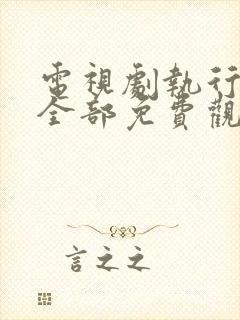 電視劇執行
全部免費觀
言之之